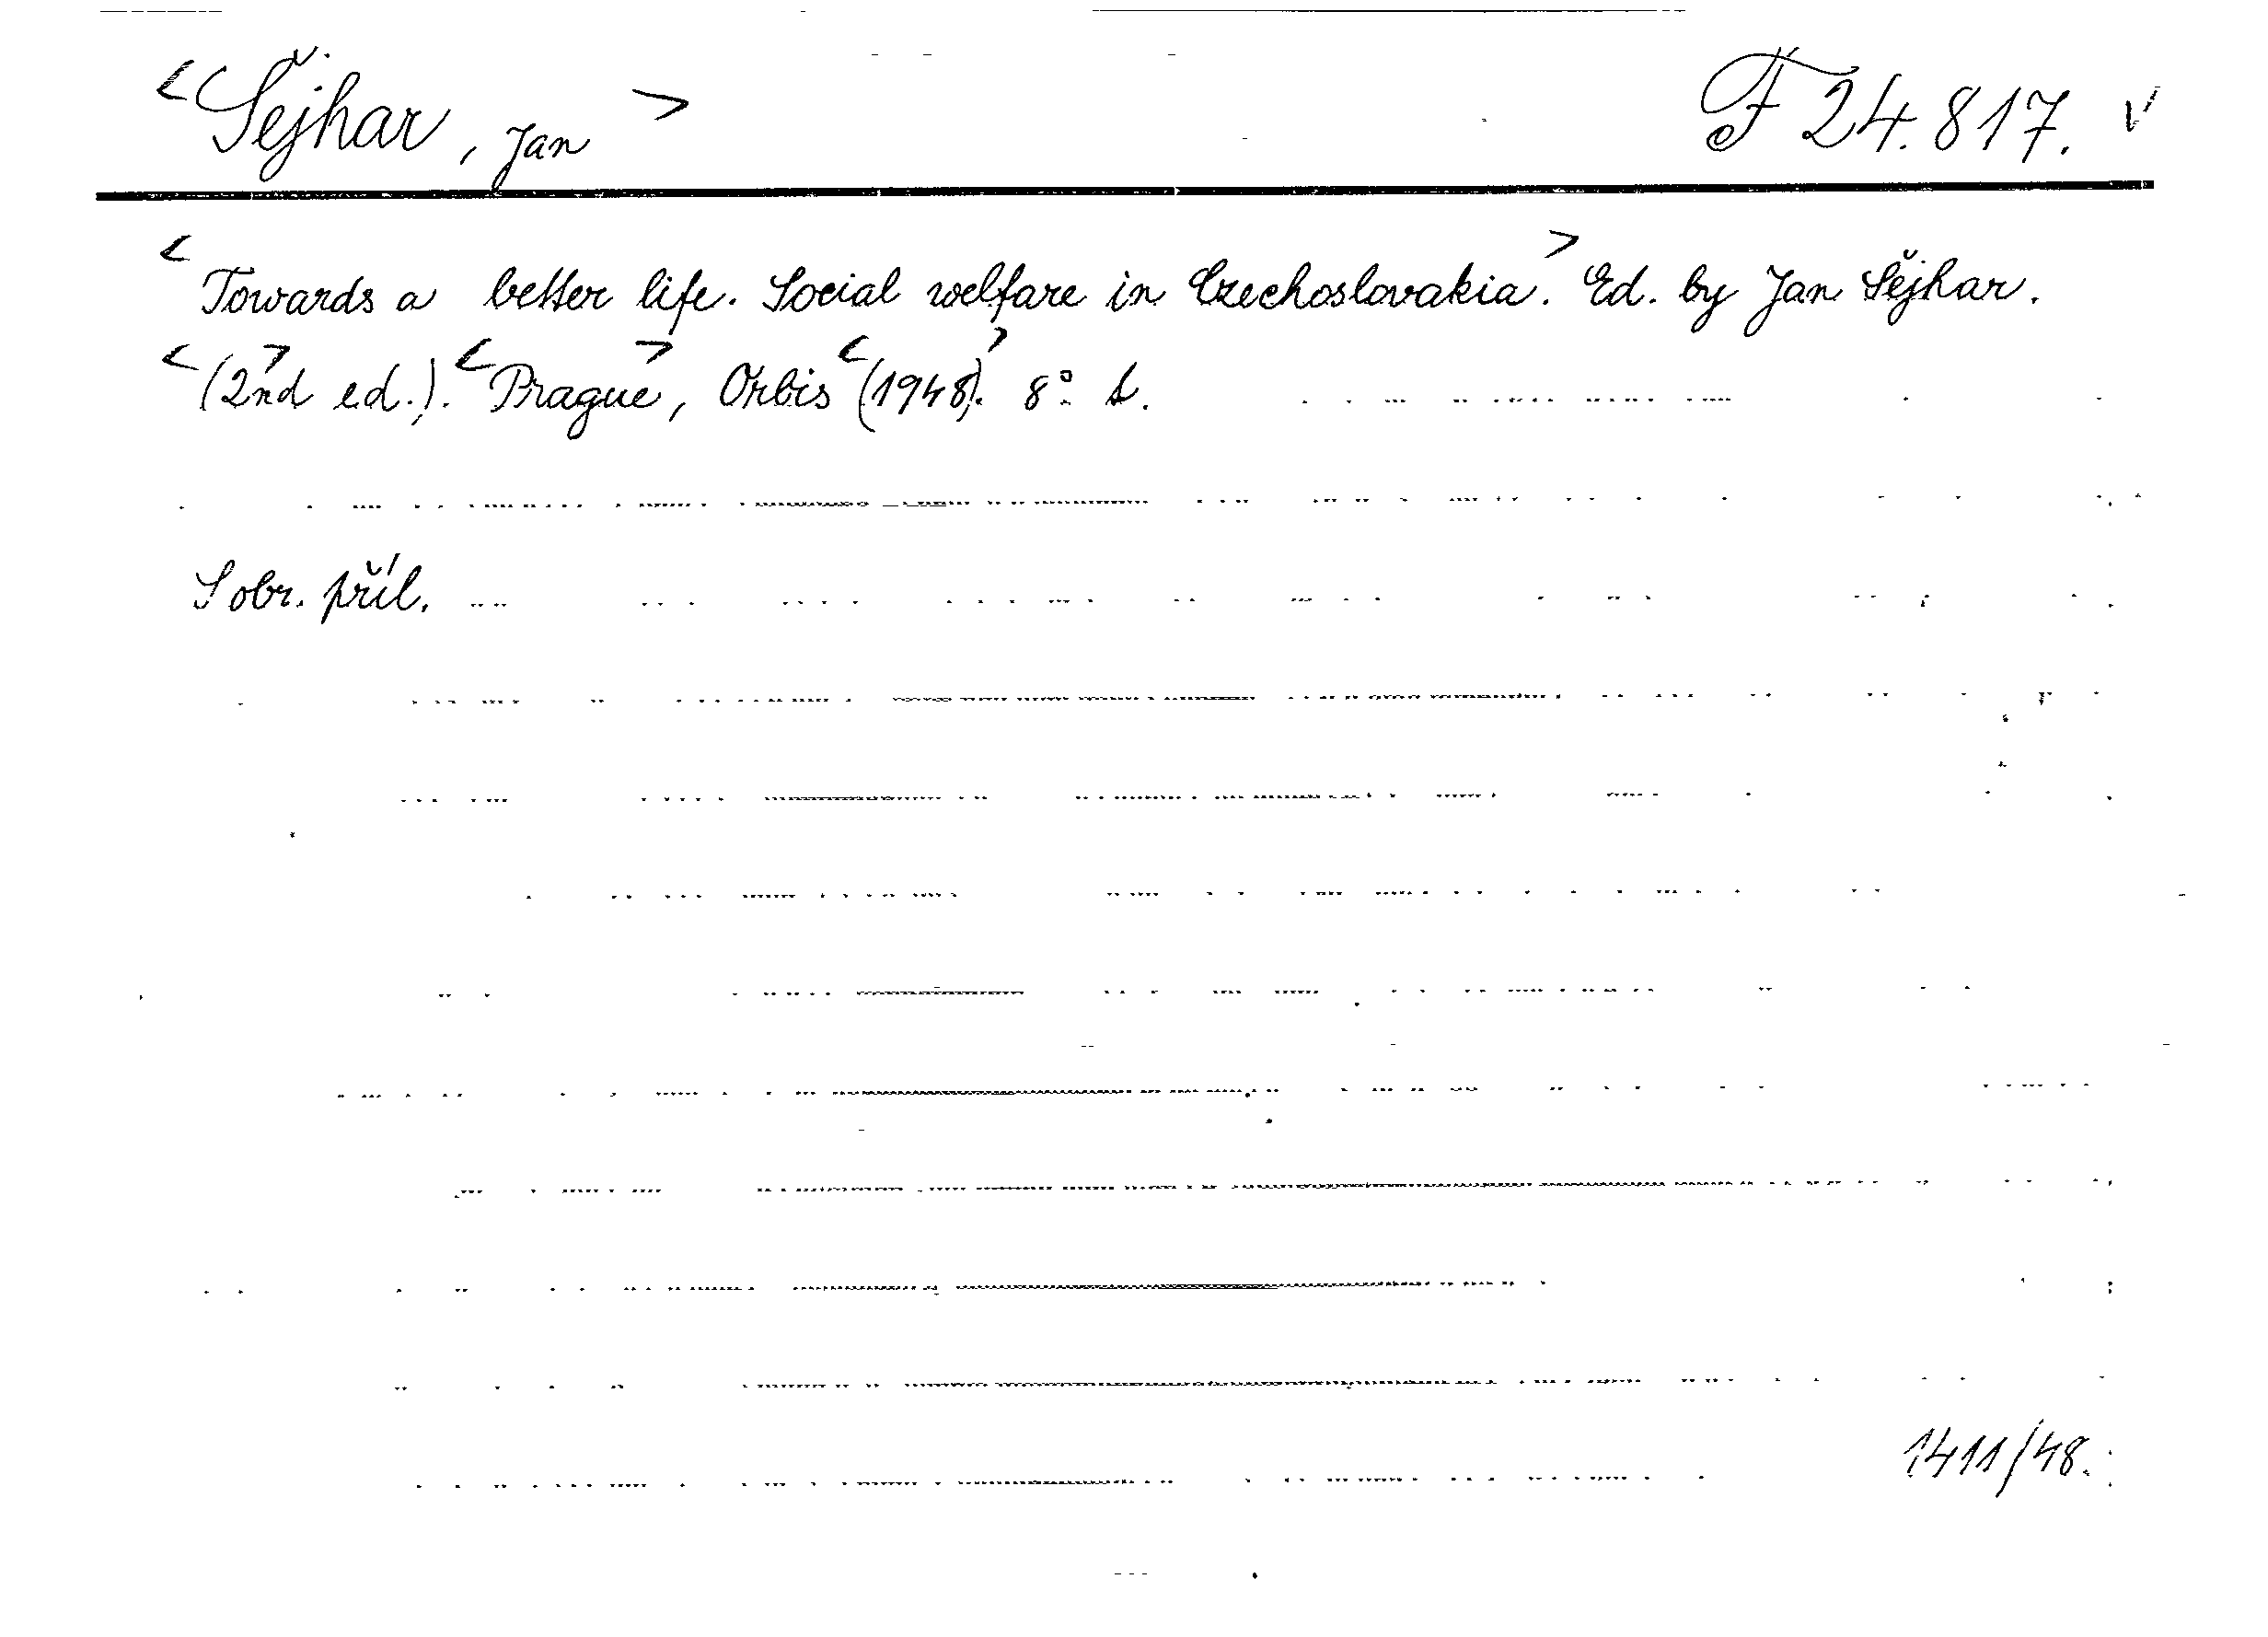 <Šejhar, Jan> F 24.817. √
<Towards a better life. Social welfare in Czechoslovakia.> Ed. by Jan Šejhar.
<(2>nd ed.). <Prague>, Orbis <(1948>). 8° b.
S obr. příl.
1411/48.